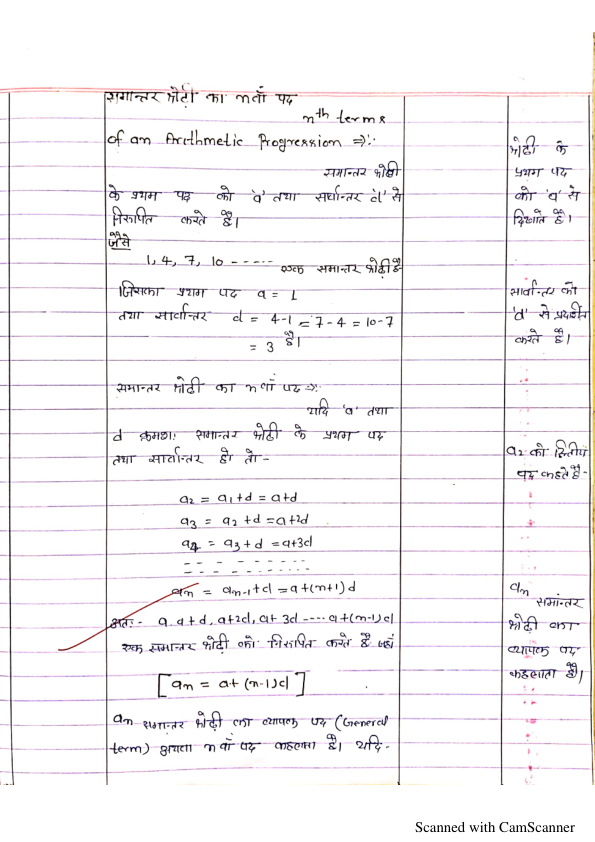 समान्तर श्रेढ़ी का nवाँ पद
nth terms
of an Arithmetic Progression ⇒:
समान्तर श्रेढ़ी
के प्रथम पद को 'a' तथा सर्वान्तर 'd' से
निरूपित करते हैं।
जैसे
1, 4, 7, 10 ----- एक समान्तर श्रेढ़ी है
जिसका प्रथम पद a = 1
तथा सार्वान्तर d = 4-1 = 7-4 = 10-7
= 3 है।
समान्तर श्रेढ़ी का nवाँ पद ⇒:
यदि 'a' तथा
d क्रमशः समान्तर श्रेढ़ी के प्रथम पद
तथा सार्वान्तर हो तो -
a2 = a1+d = a+d
a3 = a2+d = a+2d
a4 = a3+d = a+3d
an = an-1+d = a+(n+1)d
अतः- a. a+d, a+2d, a+3d ---- a+(n-1)d
एक समान्तर श्रेढ़ी को निरूपित करते है जहाँ
[an = a+(n-1)d]
an समान्तर श्रेढ़ी का व्यापक पद (General
term) अथवा nवाँ पद कहलाता है। यदि-
श्रेढ़ी के
प्रथम पद
को 'a' से
दिखाते है।
सार्वान्तर को
'd' से प्रदर्शित
करते है।
a2 को द्वितीय
पद कहते है-
an
समांतर
श्रेढ़ी का
व्यापक पद
कहलाता है।
Scanned with CamScanner